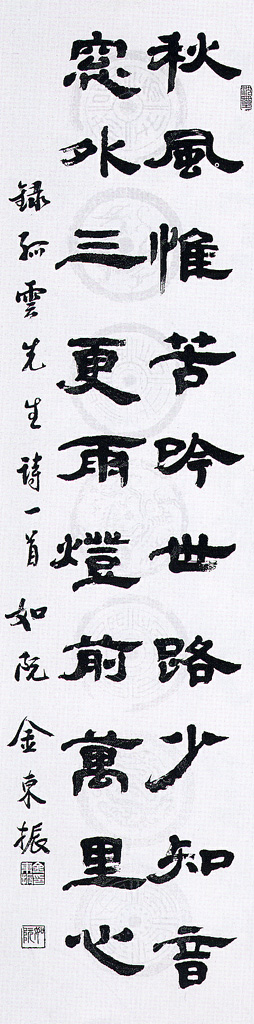 秋風惟苦吟世路少知音
窓外三更雨燈前萬里心
録孤雲先生詩一首 如阮 金東振